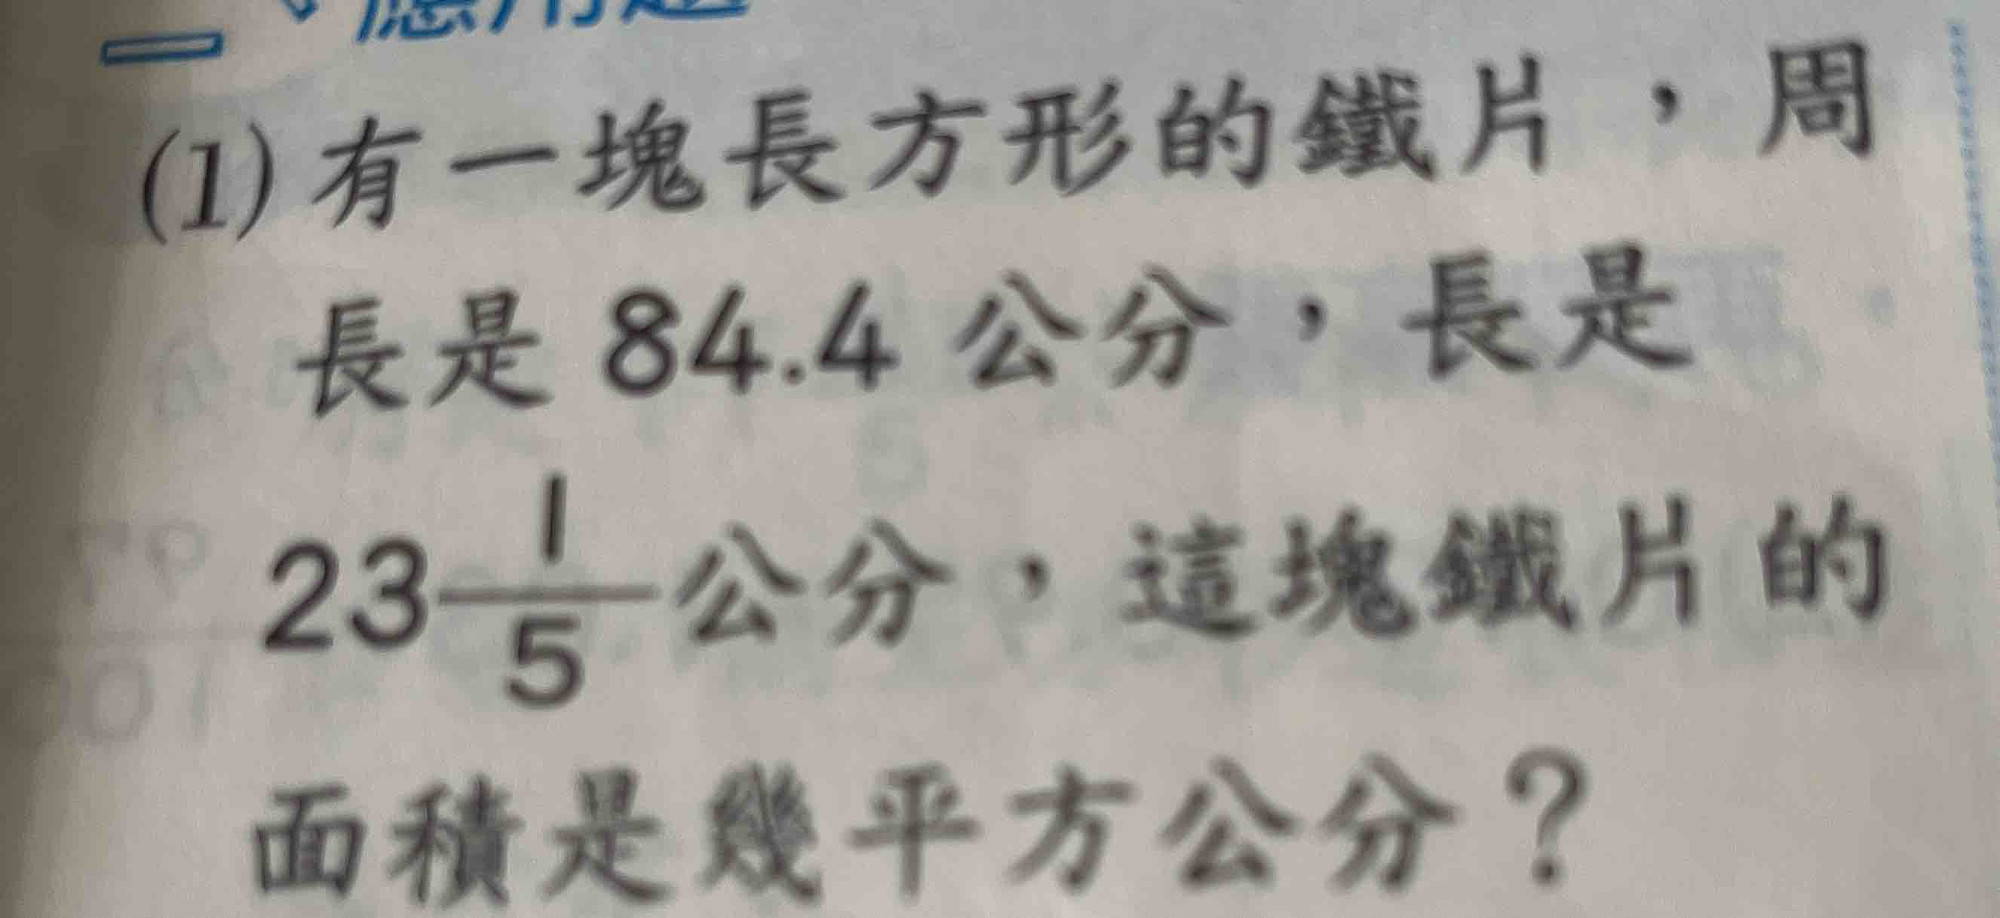 二、應用題
(1)有一塊長方形的鐵片，周
長是 84.4 公分，長是
23 1/5 公分，這塊鐵片的
面積是幾平方公分？